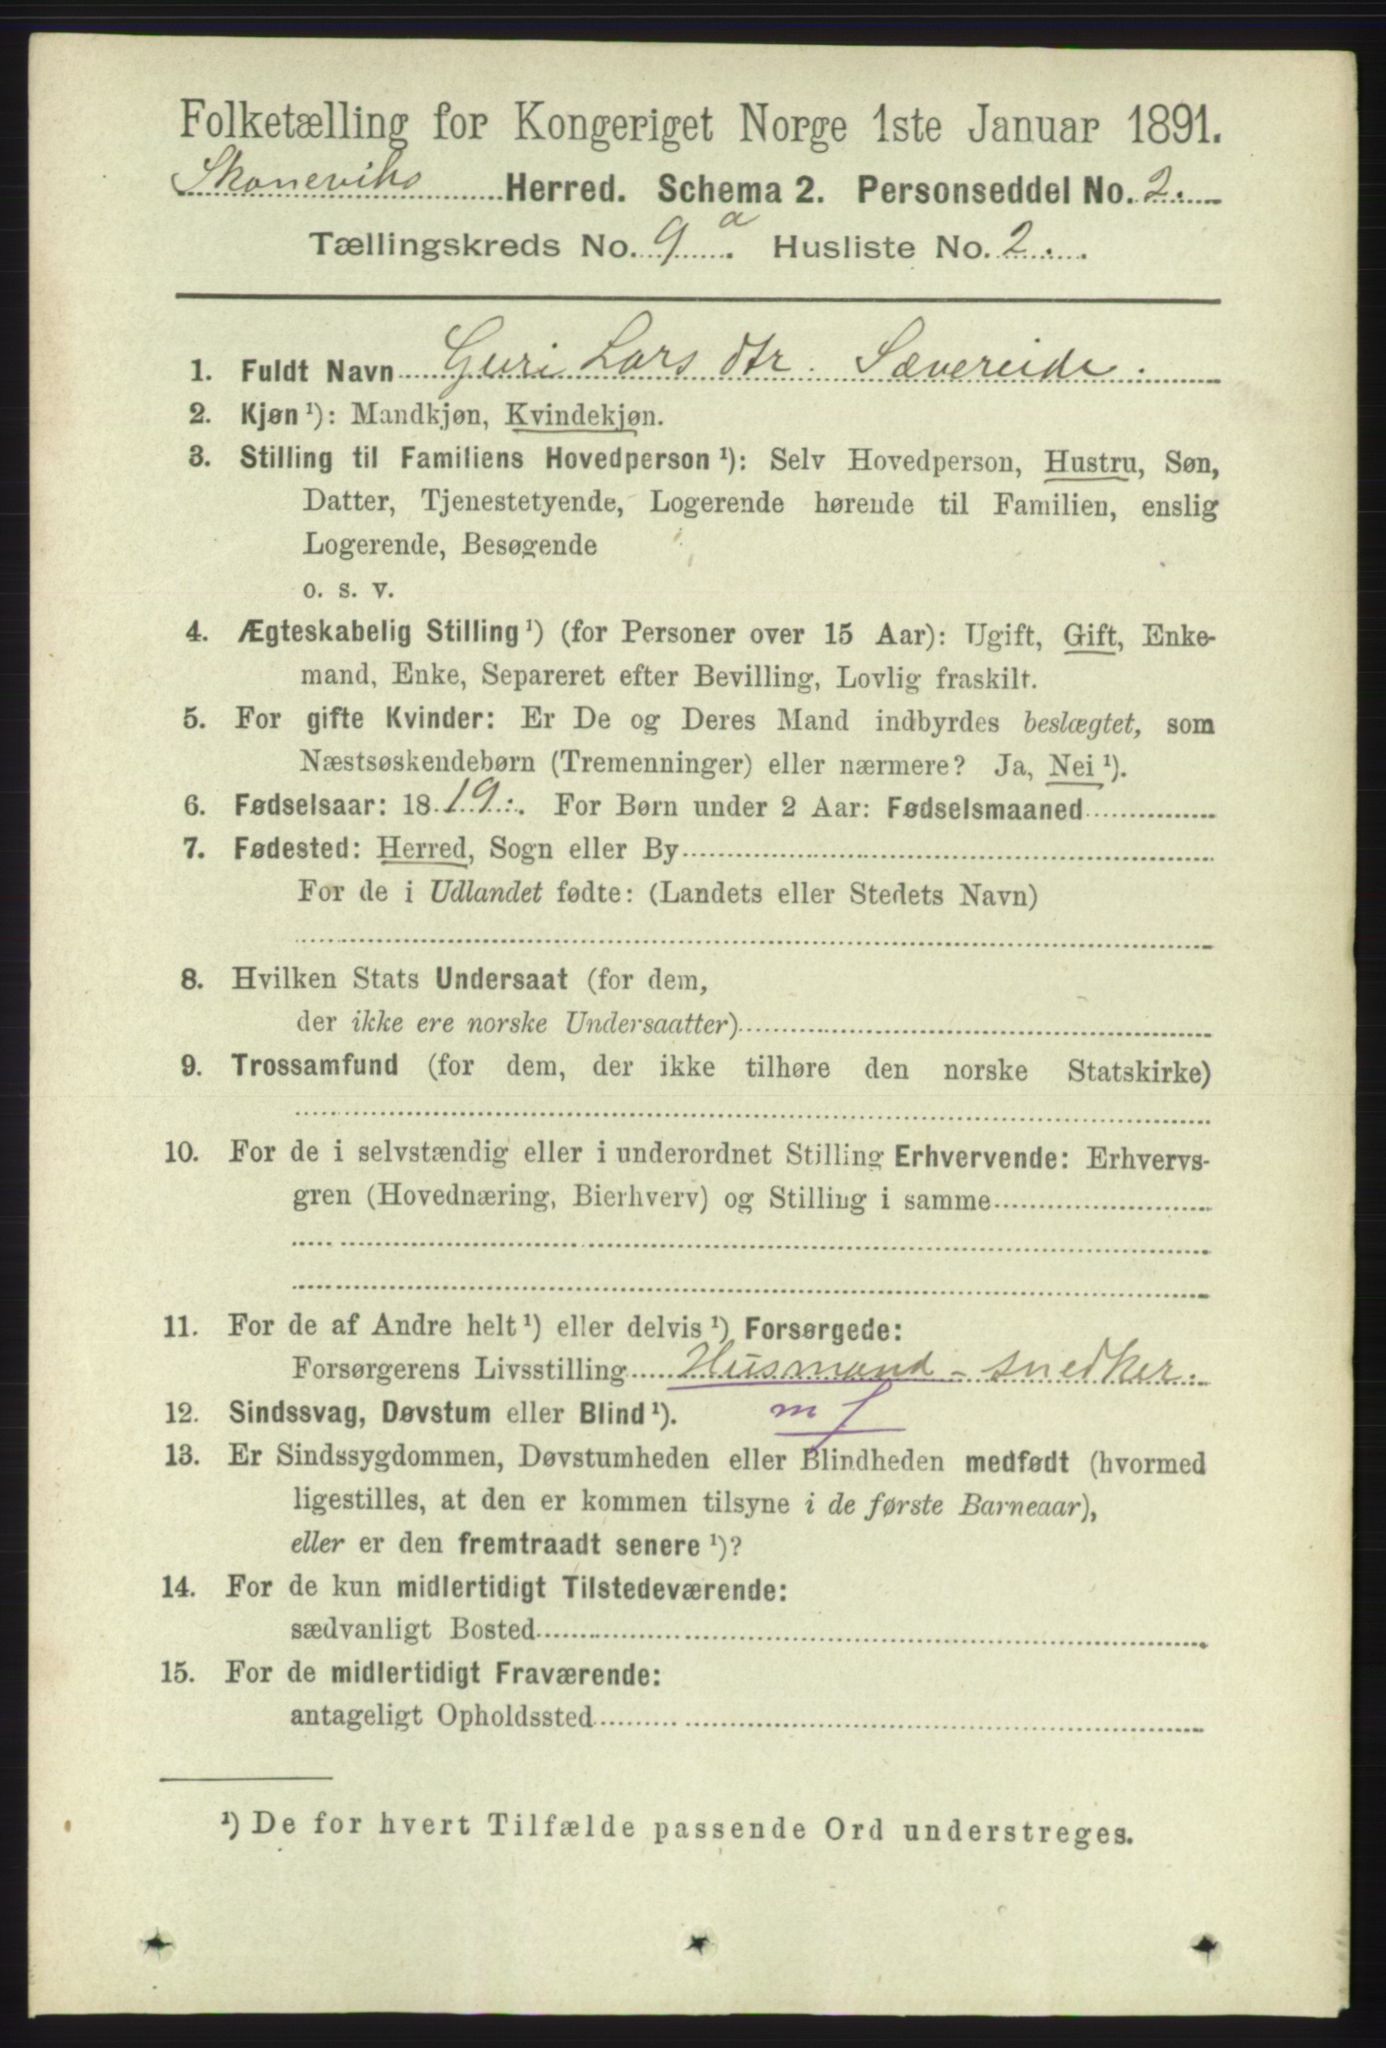 Folketælling for Kongeriget Norge 1ste Januar 1891.
Skoneviks Herred. Schema 2. Personseddel No. 2.
Tællingskreds No. 9 a. Husliste No. 2.
1. Fuldt Navn Guri Lars dtr. Sævereide.
2. Kjøn ¹): Mandkjøn, Kvindekjøn.
3. Stilling til Familiens Hovedperson ¹): Selv Hovedperson, Hustru, Søn,
Datter, Tjenestetyende, Logerende hørende til Familien, enslig
Logerende, Besøgende
o. s. v.
4. Ægteskabelig Stilling ¹) (for Personer over 15 Aar): Ugift, Gift, Enke-
mand, Enke, Separeret efter Bevilling, Lovlig fraskilt.
5. For gifte Kvinder: Er De og Deres Mand indbyrdes beslægtet, som
Næstsøskendebørn (Tremenninger) eller nærmere? Ja, Nei ¹).
6. Fødselsaar: 1819. For Børn under 2 Aar: Fødselsmaaned
7. Fødested: Herred, Sogn eller By
For de i Udlandet fødte: (Landets eller Stedets Navn)
8. Hvilken Stats Undersaat (for dem,
der ikke ere norske Undersaatter)
9. Trossamfund (for dem, der ikke tilhøre den norske Statskirke)
10. For de i selvstændig eller i underordnet Stilling Erhvervende: Erhvervs-
gren (Hovednæring, Bierhverv) og Stilling i samme
11. For de af Andre helt ¹) eller delvis ¹) Forsørgede:
Forsørgerens Livsstilling Husmand - snedker.
12. Sindssvag, Døvstum eller Blind ¹). m f
13. Er Sindssygdommen, Døvstumheden eller Blindheden medfødt (hvormed
ligestilles, at den er kommen tilsyne i de første Barneaar),
eller er den fremtraadt senere ¹)?
14. For de kun midlertidigt Tilstedeværende:
sædvanligt Bosted
15. For de midlertidigt Fraværende:
antageligt Opholdssted
¹) De for hvert Tilfælde passende Ord understreges.